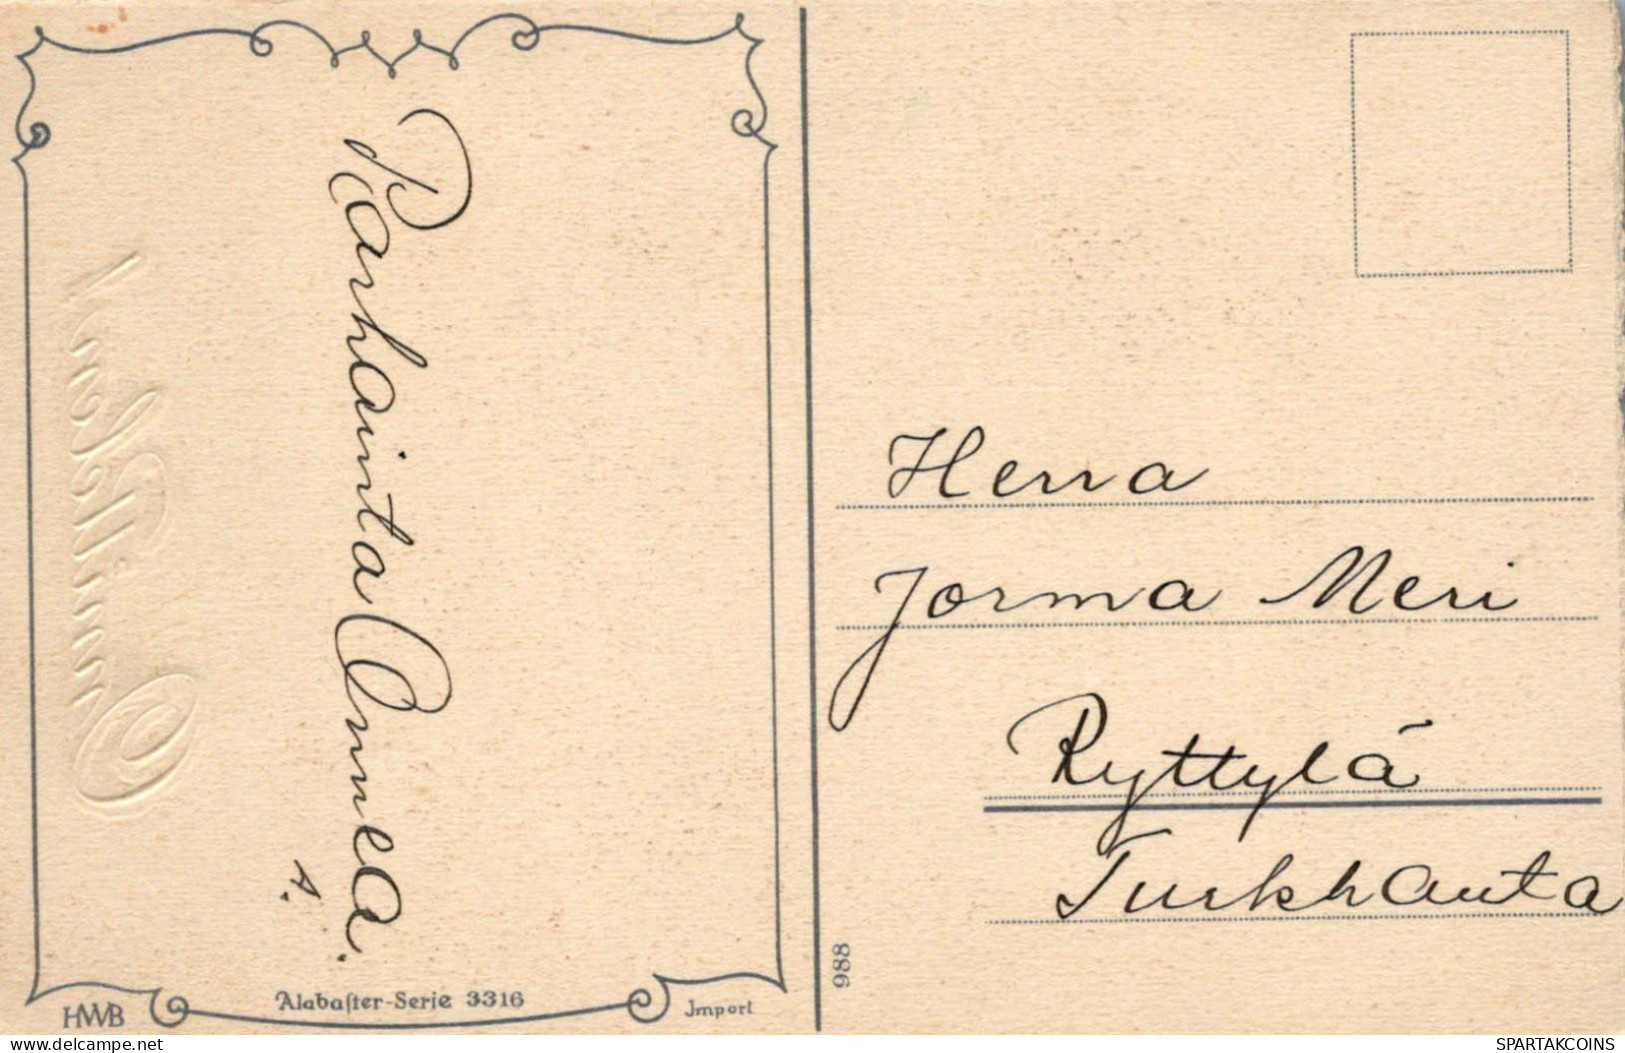 Parhainta Onnea.
s.
HWB
Alabaſter-Serie 3316
Jmport
988
Herra
Jorma Meri
Ryttylá
Turkhauta
the-saleroom.com
SPARTAKCOINS